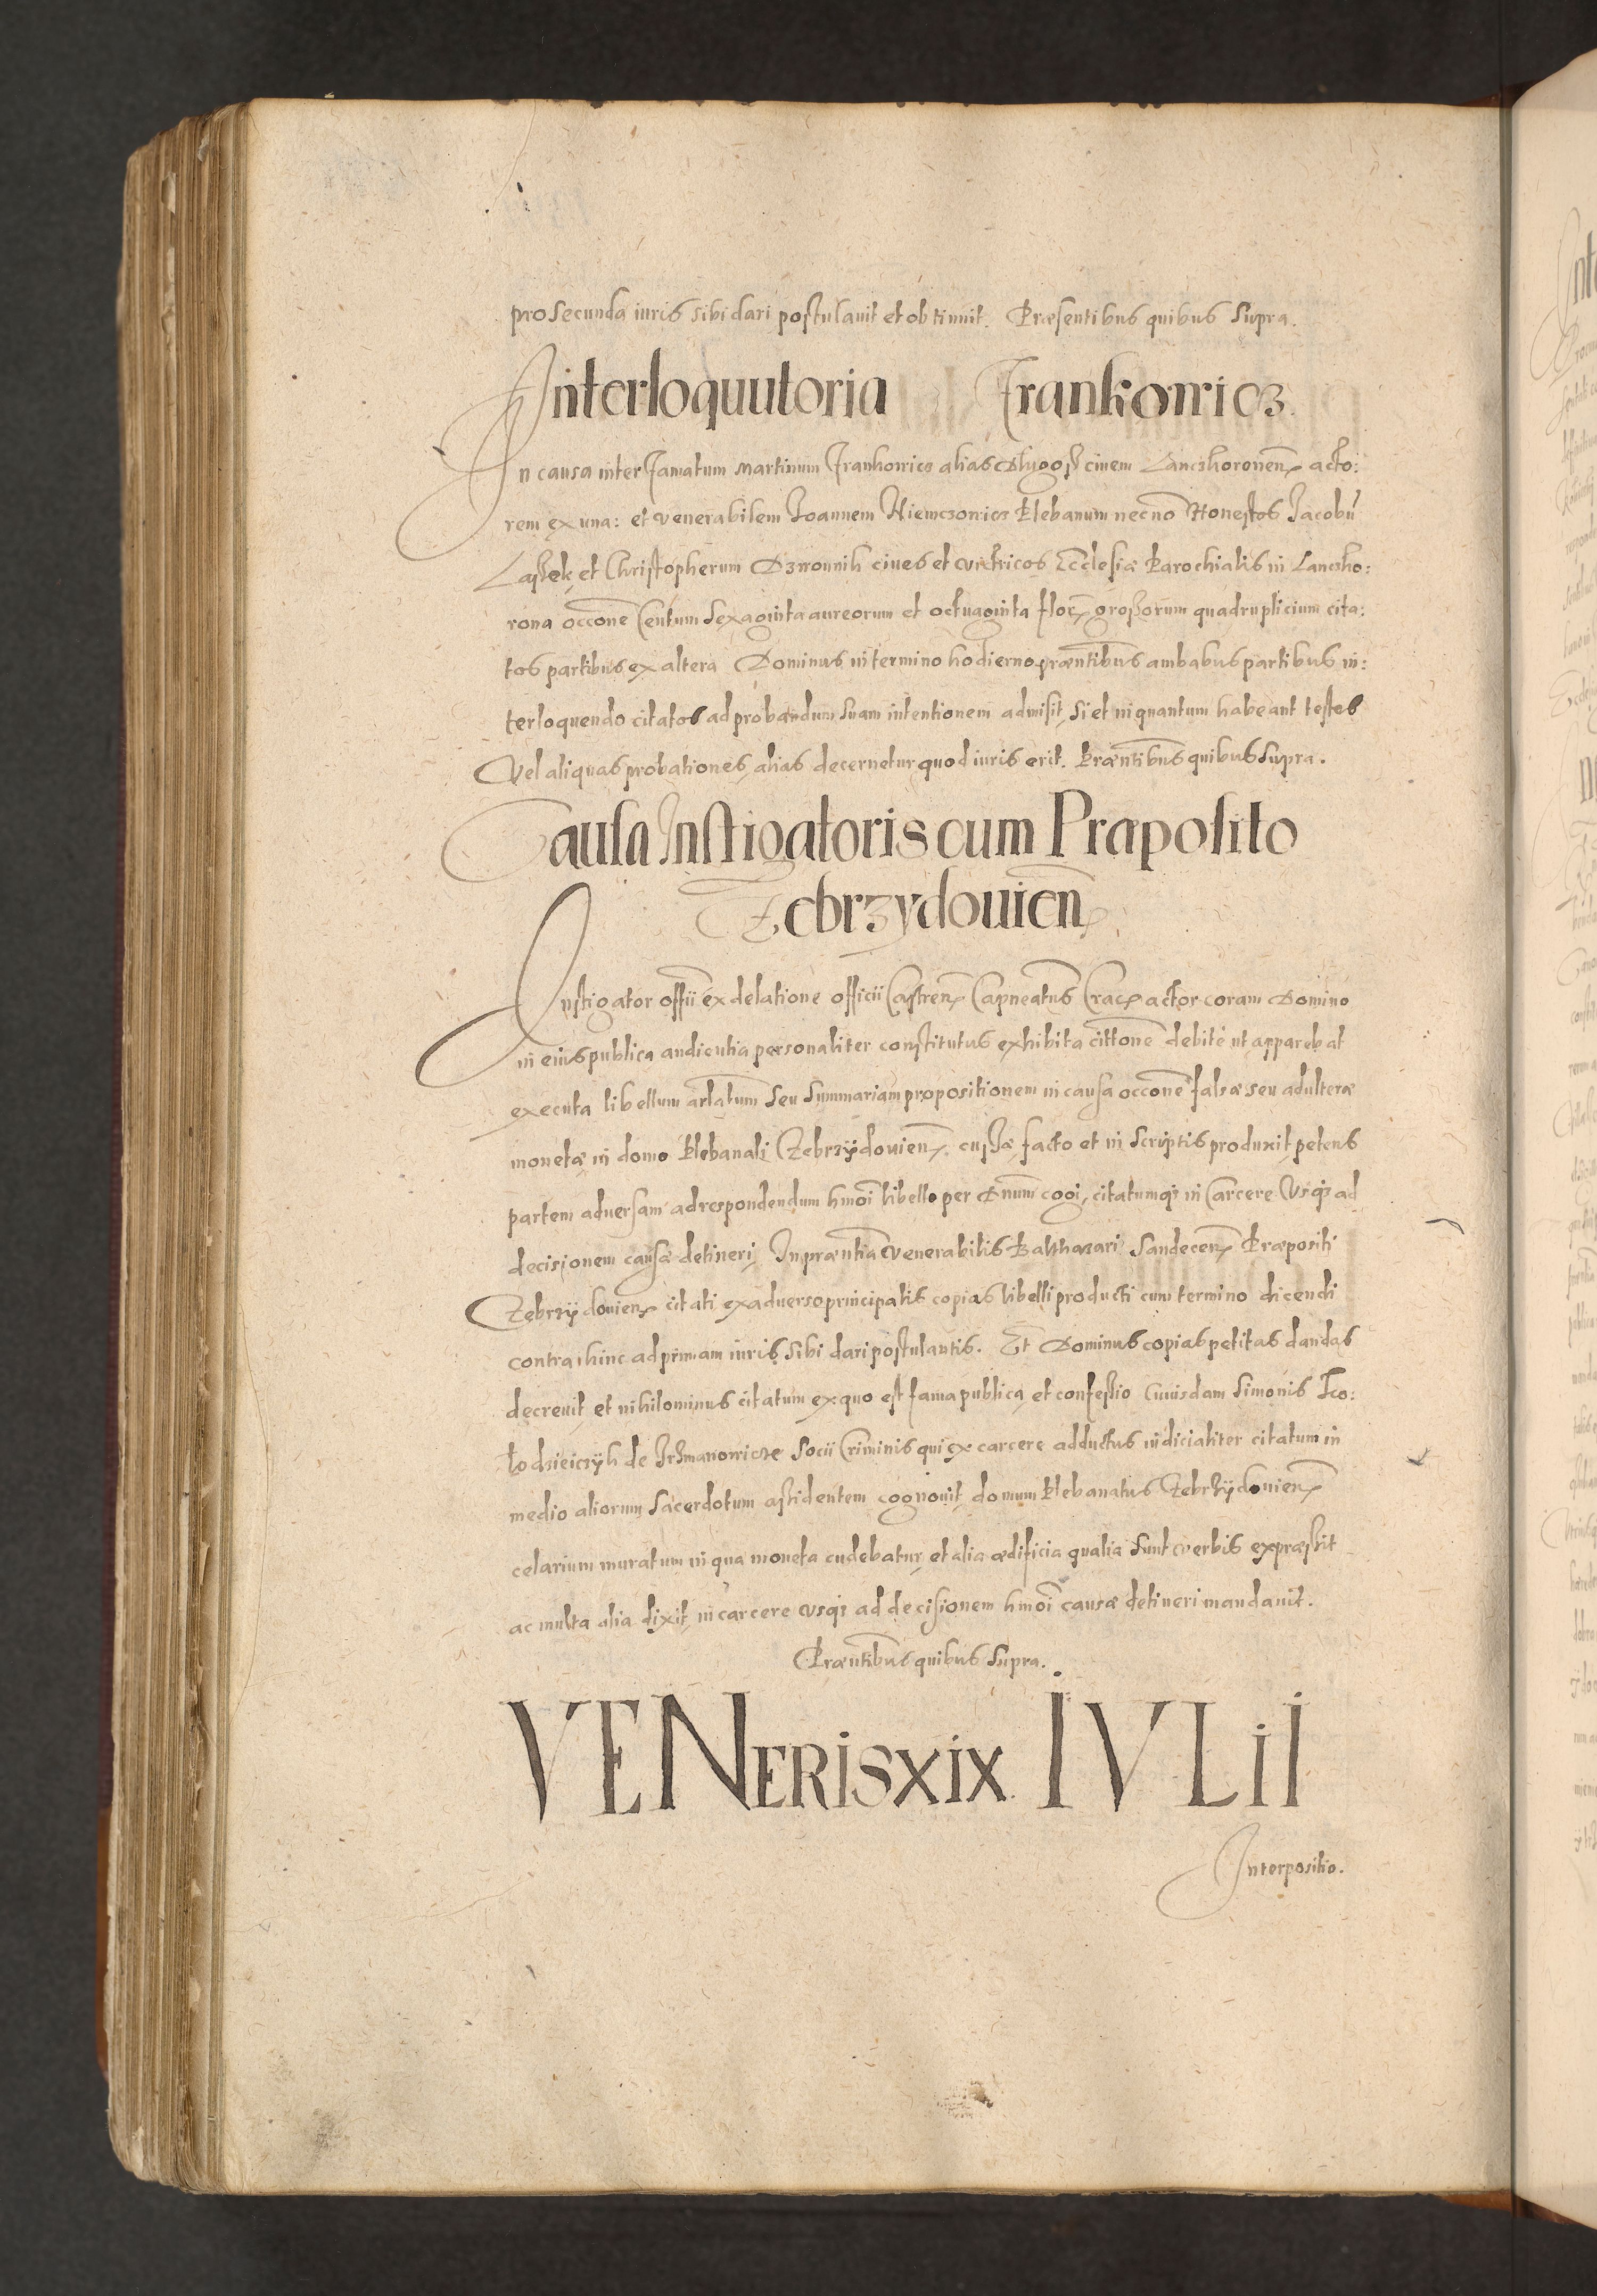 pro secunda iuris sibi dari postulavit et obtinuit. Præsentibus quibus supra.
Interloquutoria Frankowicz.
In causa inter Famatum Martinum Frankowicz alias Dlugosz civem Lanczkoronen̄ acto:
rem ex una: et venerabilem Joannem Niemczowicz Plebanum necnō Honestos Jacobū
Laszek et Christopherum Dzwonnik cives et vitricos Ecclesiæ Parochialis in Lanczko:
rona occōne Centum sexaginta aureorum et octuaginta flor̄ grossorum quadruplicium cita:
tos partibus ex altera Dominus in termino hodierno præntibus ambabus partibus in:
terloquendo citatos ad probandum suam intentionem admisit, si et in quantum habeant testes
Vel aliquas probationes, alias decernetur quod iuris erit. Præntibus quibus supra.
Causa Instigatoris cum Præposito
Zebrzydovien̄
Instigator offīi ex delatione officii Castren̄ Capneatus Crac̄ actor coram Domino
in eius publica audientia personaliter constitutus exhibita cittōne debite ut apparebat
executa libellum arlatum seu summariam propositionem in causa occōne falsæ seu adulteræ
monetæ in domo Plebanali Zebrzÿdovien̄ cussæ facto et in scriptis produxit petens
partem adversam ad respondendum hmōi libello per Dnūm cogi, citatumq₃ in Carcere Usq₃ ad
decisionem causæ detineri, In præntia Venerabilis Balthazari Sandecen̄ Præpositi
Zebrzÿdovien̄ citati ex adverso principalis copias libelli producti cum termino dicendi
contra hinc ad primam iuris sibi dari postulantis. Et Dominus copias petitas dandas
decrevit et nihilominus citatum ex quo est fama publica et confessio Cuiusdam Simonis
de socii Criminis qui ex carcere adductus iudicialiter citatum in
medio aliorum sacerdotum assidentem cognovit, domum Plebanatus Zebrzÿdovien̄
celarium muratum in qua moneta cudebatur, et alia ædificia qualia sunt verbis expræssit
ac multa alia dixit, in carcere usq₃ ad decisionem hmōi causæ detineri mandavit.
Præntibus quibus supra.
VENERIS XIX IVLII
Interpositio.